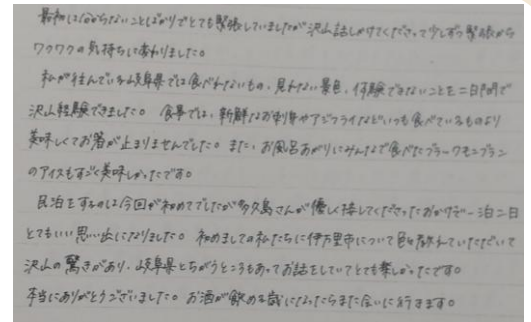 最初は分からないことばかりでとても緊張していましたが沢山話しかけてくださって少しずつ緊張から
ワクワクの気持ちに変わりました。
私が住んでいる岐阜県では食べれないもの、見れない景色、体験できないことを二日間で
沢山経験できました。食事では、新鮮なお刺身やアジフライなどいつも食べているものより
美味しくてお箸が止まりませんでした。また、お風呂あがりにみんなで食べたブラックモンブラン
のアイスもすごく美味しかったです。
民泊をするのは今回が初めてでしたが多久島さんが優しく接してくださったおかげで一泊二日
とてもいい思い出になりました。初めましての私たちに伊万里市について色々教えていただいて
沢山の驚きがあり、岐阜県とちがうところもあってお話をしていてとても楽しかったです。
本当にありがとうございました。お酒が飲める歳になったらまた会いに行きます。